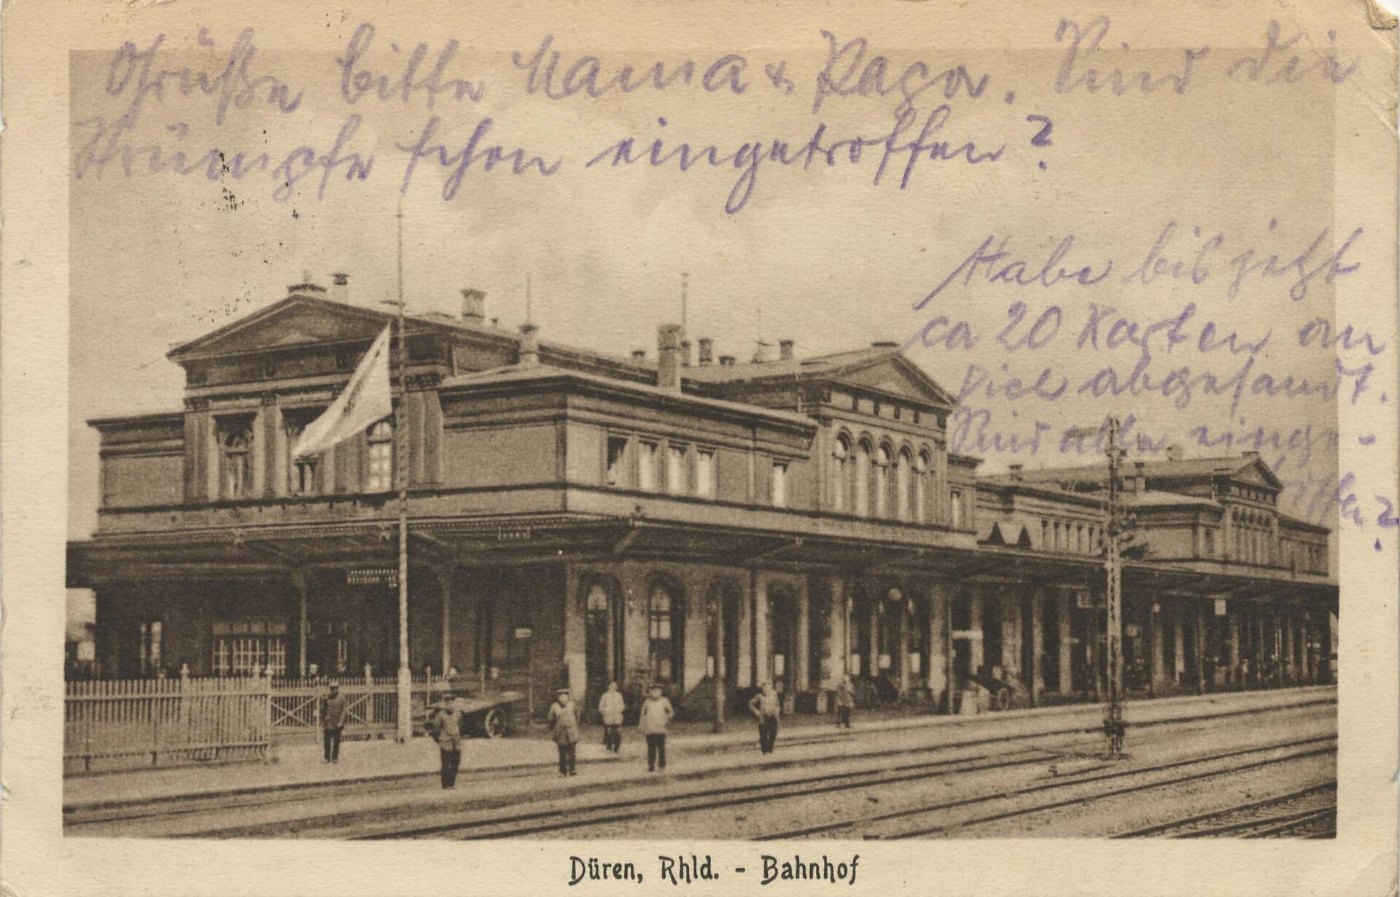 Grüße bitte Mama & Papa. Sind die
Strümpfe schon eingetroffen?
Habe bis jetzt
ca 20 Karten an
Dich abgesandt.
Sind alle einge-
troffen?
Düren, Rhld. - Bahnhof